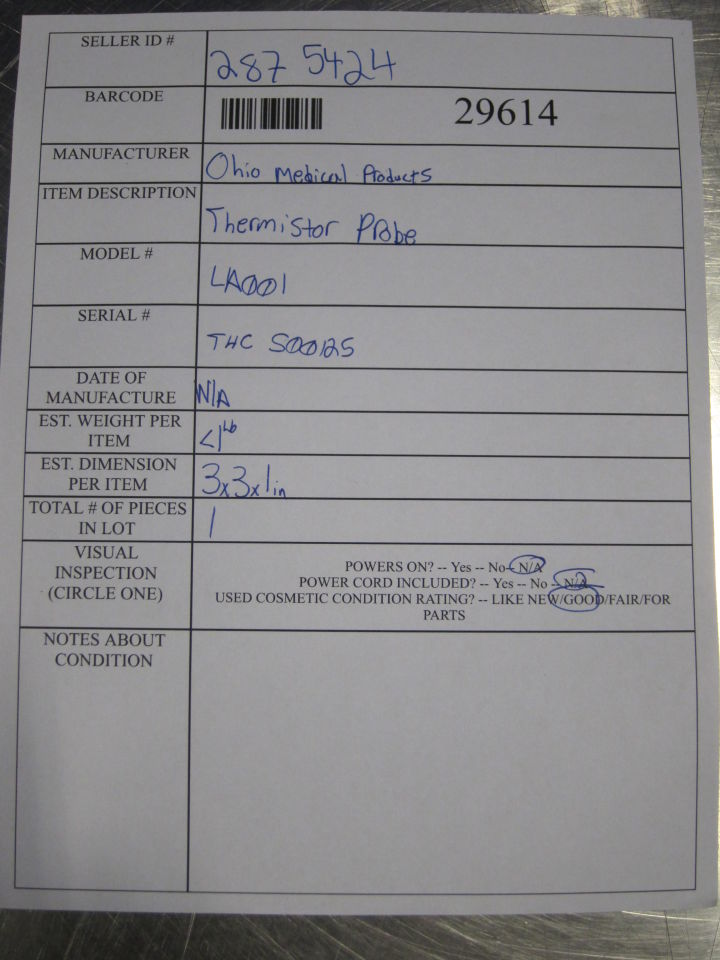 SELLER ID #
287 5424
BARCODE
29614
MANUFACTURER
Ohio Medical Products
ITEM DESCRIPTION
Thermistor Probe
MODEL #
LA001
SERIAL #
THC S00125
DATE OF
MANUFACTURE
N/A
EST. WEIGHT PER
ITEM
<1 Lb
EST. DIMENSION
PER ITEM
3x3x1in
TOTAL # OF PIECES
IN LOT
1
VISUAL
INSPECTION
(CIRCLE ONE)
POWERS ON? -- Yes -- No-- N/A
POWER CORD INCLUDED? -- Yes -- No -- N/A
USED COSMETIC CONDITION RATING? -- LIKE NEW/GOOD/FAIR/FOR
PARTS
NOTES ABOUT
CONDITION